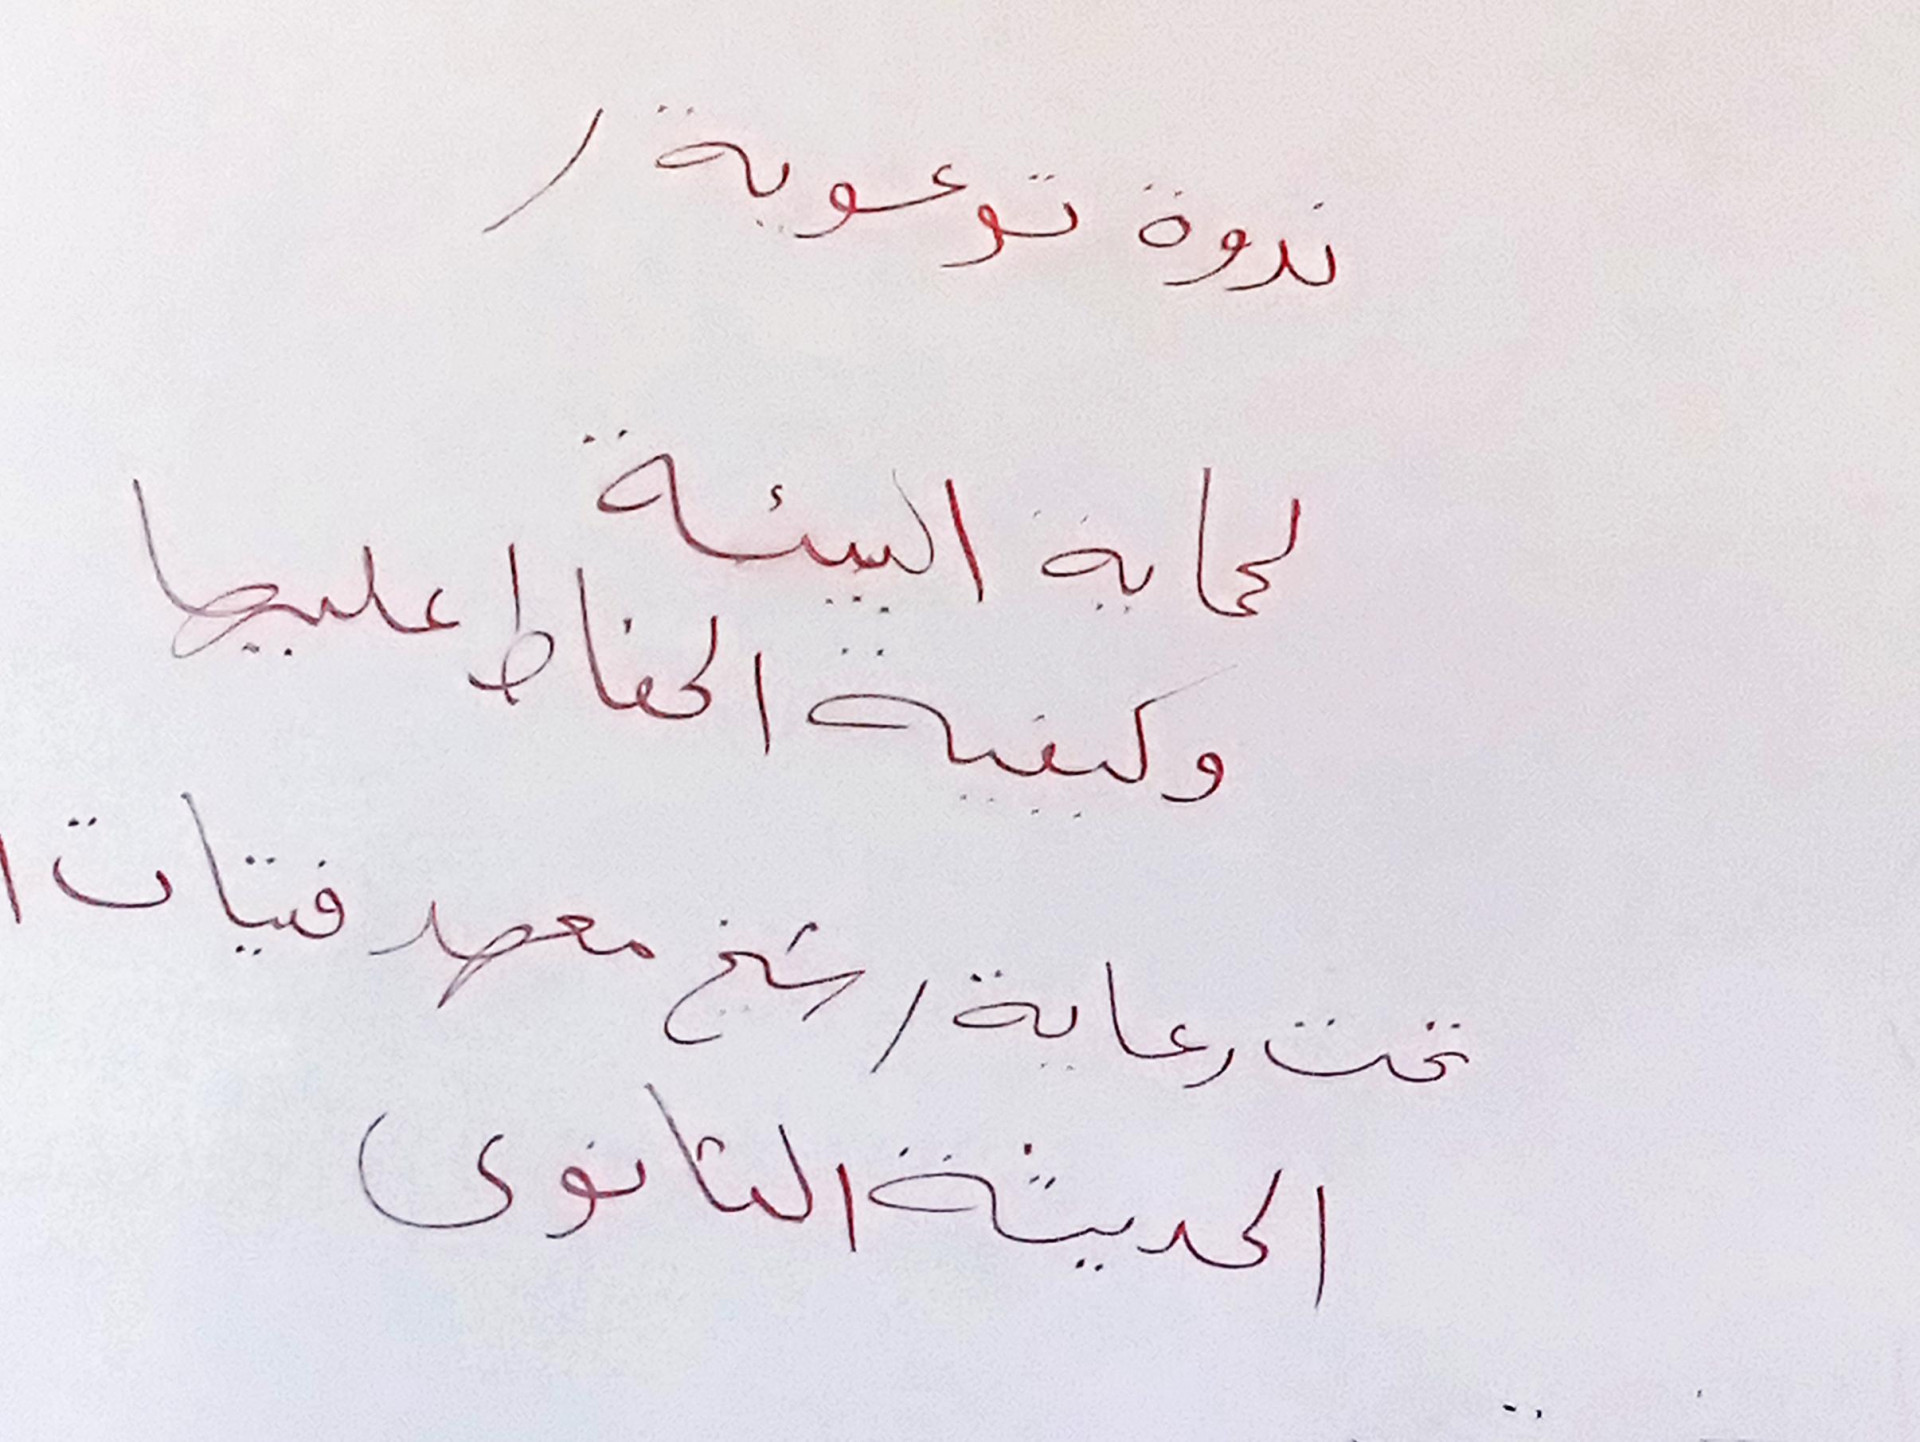 ندوة توعوية /
لحماية البيئة
وكيفية الحفاظ عليها
تحت رعاية / شيخ معهد فتيات
الحديثة الثانوى